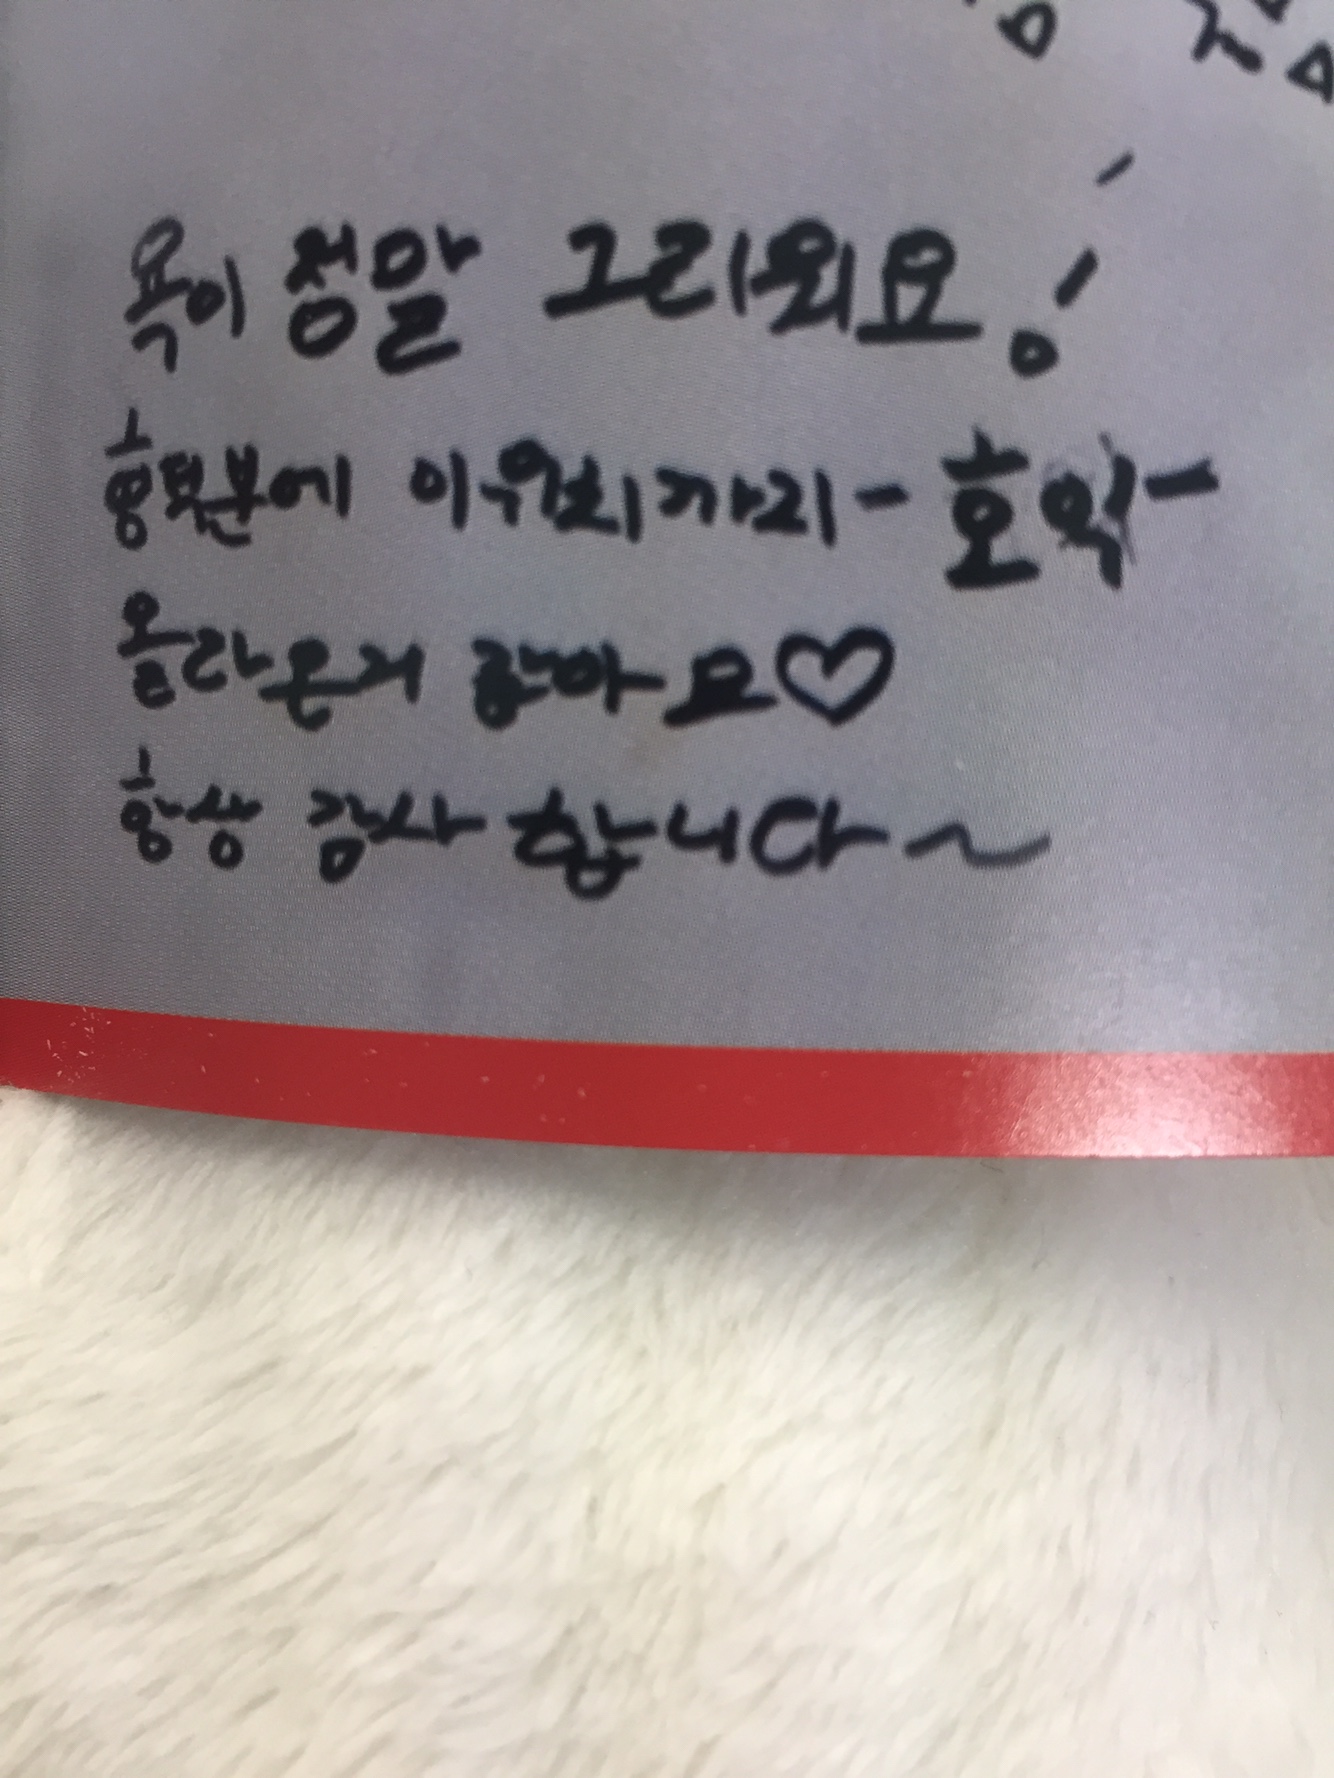 욕이 정말 그리워요!
흥덕분에 이위치까지- 호익-
올라온거 같아요♡
항상 감사합니다~